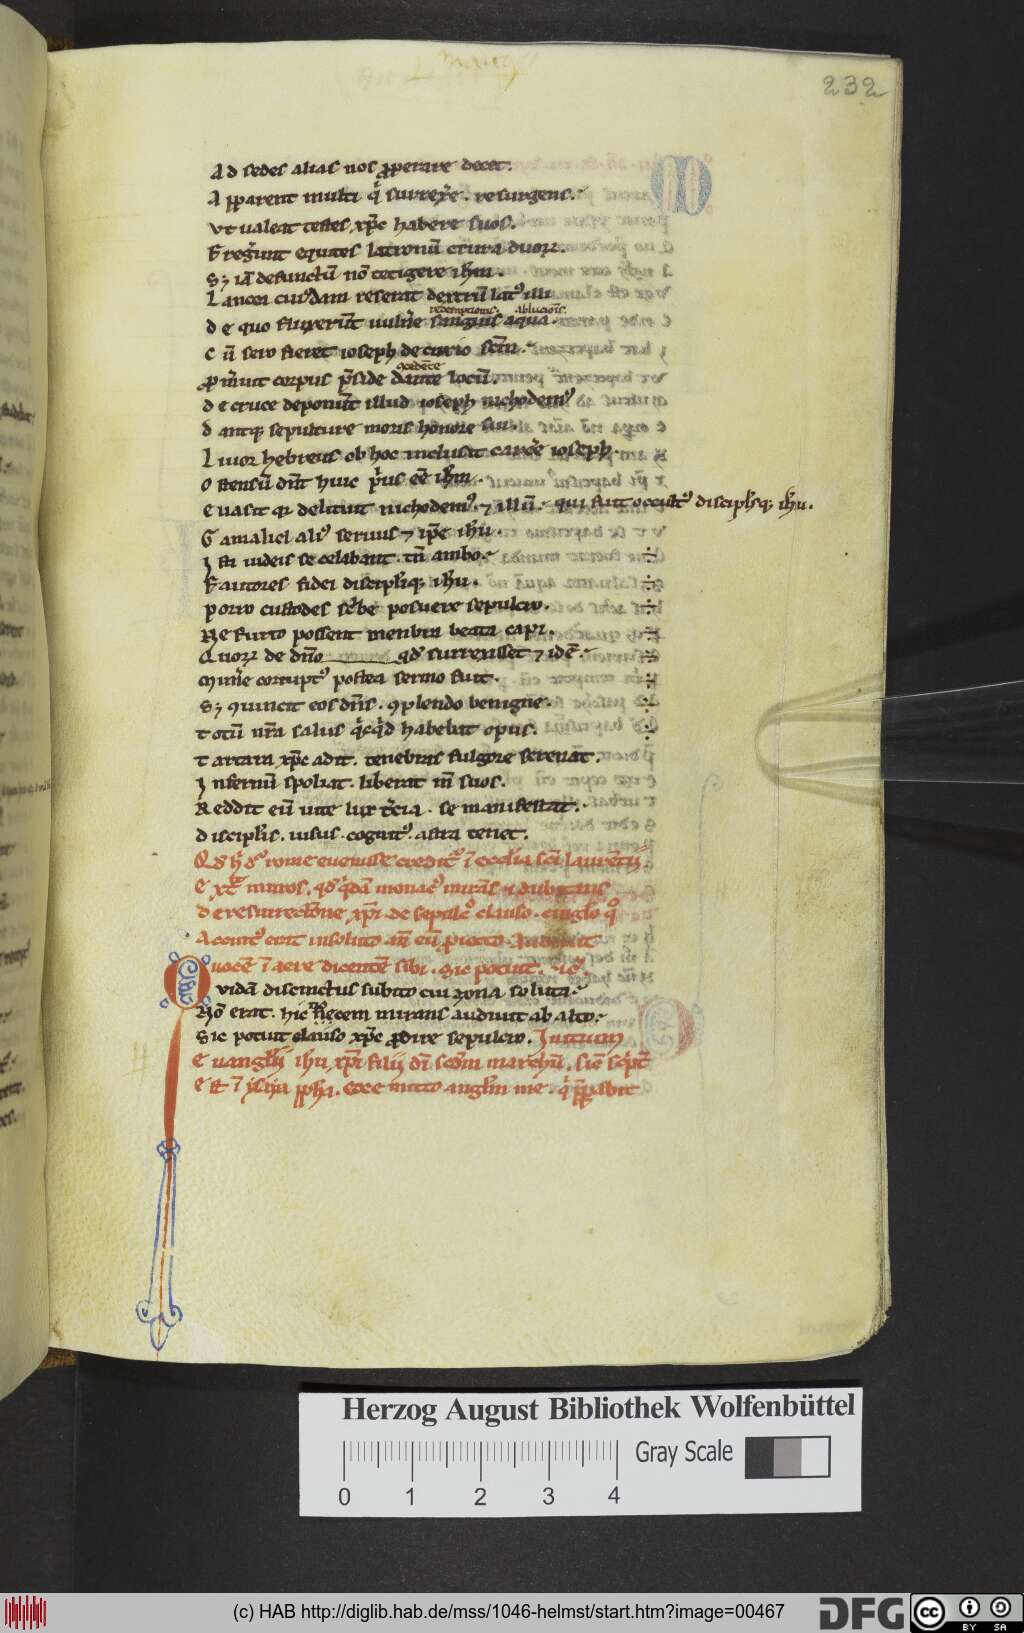 232
Ad sedes alias nos p̱perare decet.
Apparent multi q̇ surrex̄e. resurgens.
Vt ualeat testes xp̄c habere suos.
Freḡunt equites latronū crura duoꝝ.
Sꝫ iā defunctū nō tetigere ihm̄.
Lancea cuiꝰdam reserat dextrū latꝰ illi
redemptionis. ablucionis.
De quo fluxerūt uuln̄e sanguis aqua.
Cū sero fieret ioseph de
ꝓm̄uit corpus p̄side dante locū.
De cruce deponūt illud ioseph nichodemꝰ
Dantqꝫ sepulture moris honore sui.
Liuor hebreus ob hoc inclusit carc̄e ioseph.
Ostensū dn̄t huic p̄us eē ihm̄.
Euasit qꝛ delituit nichodemꝰ. ⁊ illū. qui fuit occultꝰ discipl̄qꝫ ihu.
Gamaliel aliꝰ seruus ⁊ ip̄e ihu.
Isti iudeis se celabant. tn̄ ambo.
Fautores fidei discipl̄qꝫ ihu.
Porro custodes posuere sepulcro.
Ne furto possent menbra beata capi.
Quoꝝ de dn̄o qd̄ surrexisset ⁊ idē.
Mun̄e corruptꝰ postea sermo fuit.
Sꝫ ꝯuincit eos dn̄s. ꝯplendo benigne.
Totū nr̄a salus q̇cq̇d habebat opus.
Tartara xp̄c adit. tenebras fulgore serenat.
Infernū spoliat. liberat in̄ suos.
Reddit eū uite lux t̄cia. se manifestat.
Discipl̄is. uisus. cognitꝰ. astra tenet.
rome euenisse creditꝰ ī ecclīa sc̄i laurētij.
Ext̄ muros. qd̄ q̇dā monacꝰ mirās ⁊ dubitans
De resurrectōne xp̄i. de sepulcꝰ clauso. cinglo
Accinctꝰ erit insoluto an̄ eū proiecto. Audiuit
uocē ī aere dicentē sibi. sic potuit.
Quidā discinctus subito cui zona soluta.
Nō erat. hic necem mirans audiuit ab alto.
Sic potuit clauso xp̄c p̱dire sepulcro. Initium
Euanglij ihu xp̄i filij dī scd̄m marchū. sic̄ sc̄pt̄
Est ī ysaia ꝓpha. Ecce mitto angl̄m me. q̇ p̱parabit
Herzog August Bibliothek Wolfenbüttel
Gray Scale
0 1 2 3 4
(c) HAB http://diglib.hab.de/mss/1046-helmst/start.htm?image=00467
DFG
cc BY SA